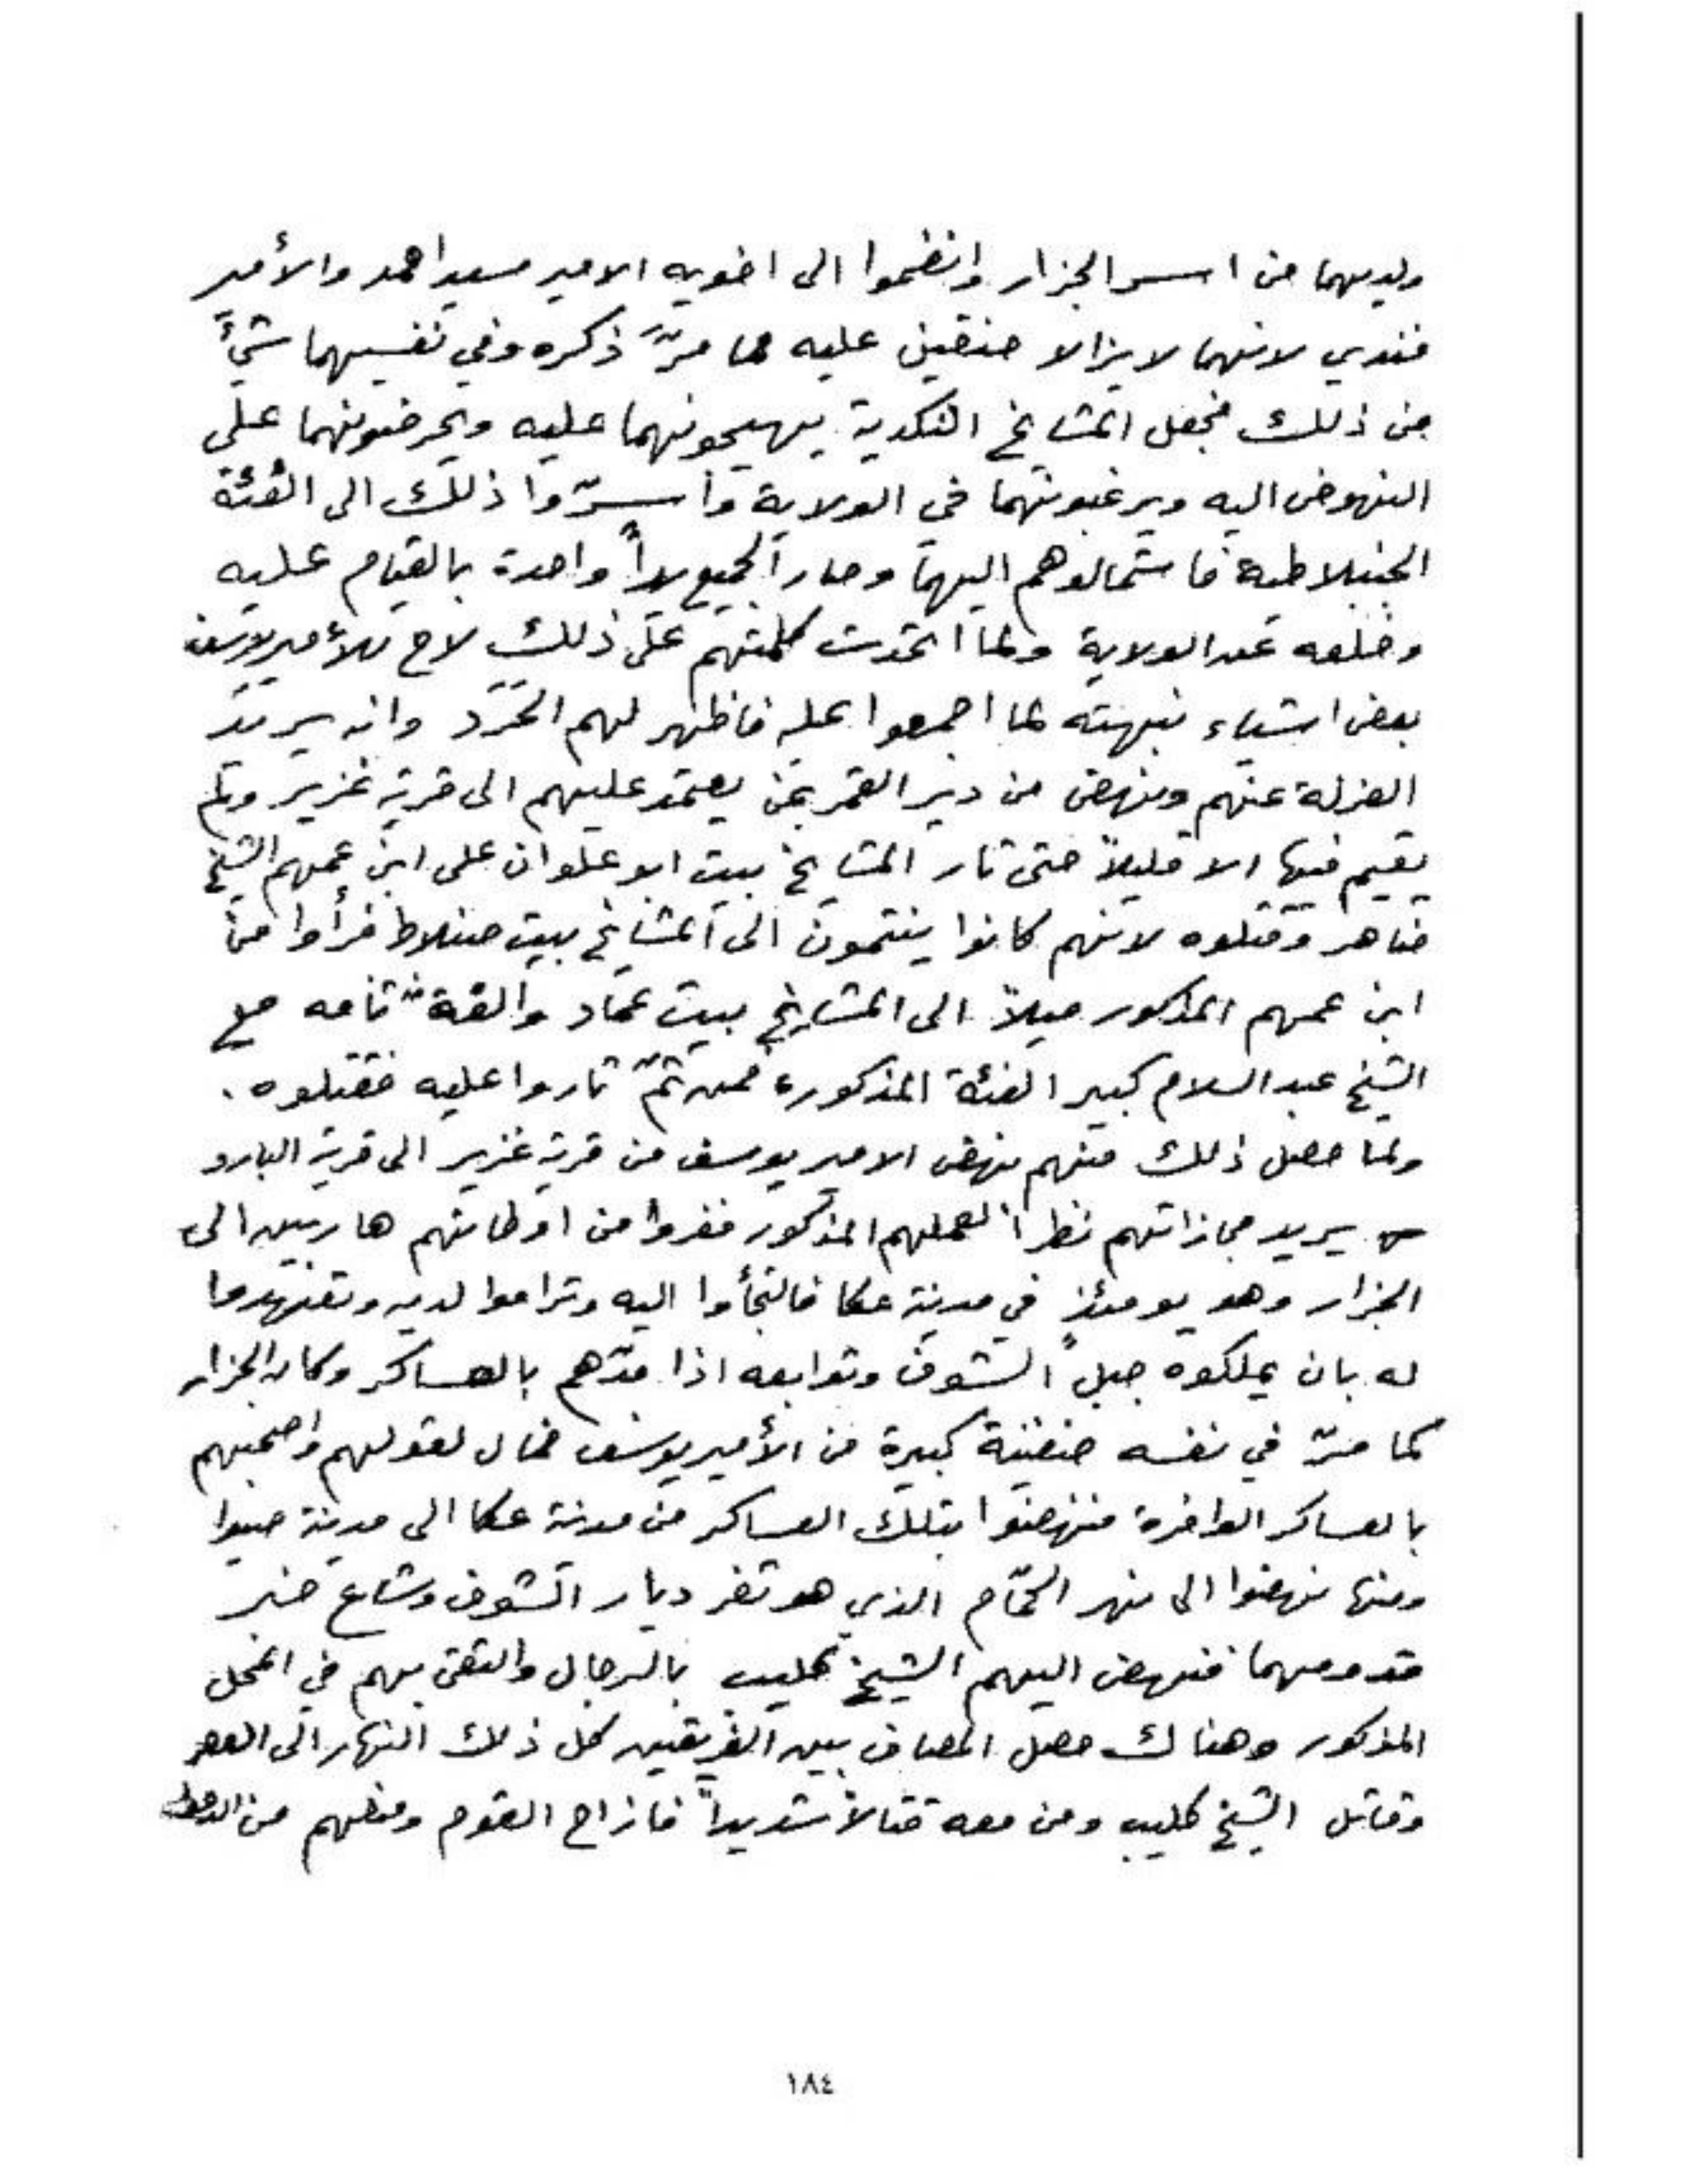 ولديهما من اسر الجزار وانضموا الى اخويه الامير سيد احمد والأمير
فندي لانهما لا يزالا حنقين عليه مما مرّ ذكره وفي نفسيهما شيءٌ
من ذلك فجعل المشايخ النكدية يهيجونهما عليه ويحرضونهما على
النهوض اليه ويرغبونهما في الولاية وأسرّوا ذلك الى الفئة
الجنبلاطية فاستمالوهم اليهما وصار الجميع يداً واحدة بالقيام عليه
وخلعه عن الولاية ولما اتحدت كلمتهم على ذلك لاح للأمير يوسف
بعض اشياء نبهته لما اجمعوا عليه فاظهر لهم الحَرَد وانه يريد
العزلة عنهم ونهض من دير القمر بمن يعتمد عليهم الى قرية غزير ولم
يقيم فيها الا قليلاً حتى ثار المشايخ بيت ابو علوان على ابن عمهم الشيخ
ضاهر وقتلوه لانهم كانوا ينتمون الى المشايخ بيت جنبلاط فرأوا من
ابن عمهم المذكور ميلاً الى المشايخ بيت عماد والفة تامه مع
الشيخ عبد السلام كبير الفئة المذكوره فمن ثمّ ثاروا عليه فقتلوه .
ولما حصل ذلك منهم نهض الامير يوسف من قرية غزير الى قرية البارو
ك يريد مجازاتهم نظراً لعملهم المذكور ففروا من اوطانهم هاربين الى
الجزار وهو يومئذٍ في مدينة عكا فالتجأوا اليه وتراموا لديه وتعهدوا
له بان يملكوه جبل الشوف وتوابعه اذا مدّهم بالعساكر وكان الجزار
كما مرّ في نفسه ضغينة كبيرة من الأمير يوسف فمال لقولهم واصحبهم
بالعساكر الوافرة فنهضوا بتلك العساكر من مدينة عكا الى مدينة صيدا
ومنها نهضوا الى نهر الحمّام الذي هو ثغر ديار الشوف وشاع خبر
قدومهما فنهض اليهم الشيخ كليب بالرجال والتقى بهم في المحل
المذكور وهناك حصل المصاف بين الفريقين كل ذلك النهار الى العصر
وقاتل الشيخ كليب ومن معه قتالاً شديداً فازاح القوم ومنعهم من
١٨٤